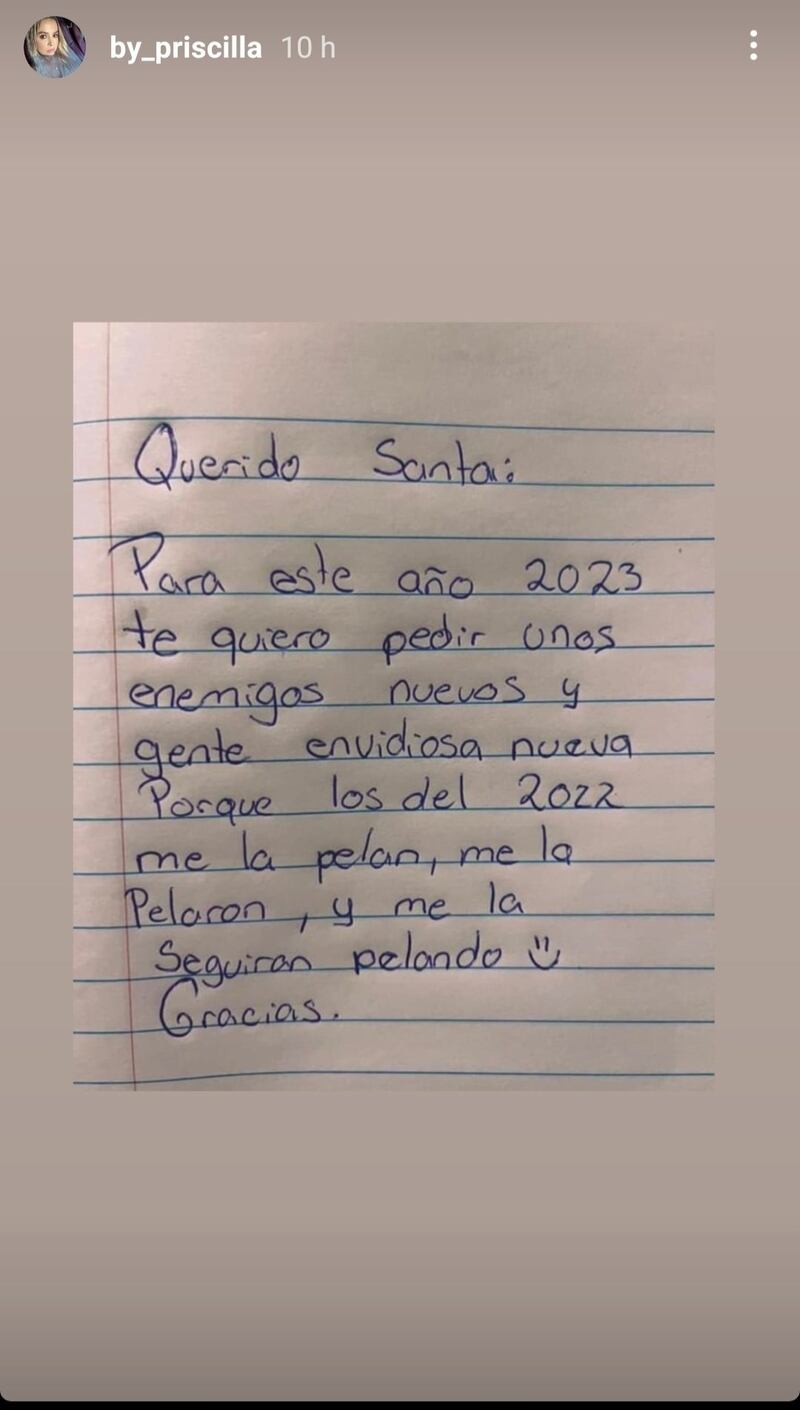 by_priscilla 10 h
Querido Santa:
Para este año 2023
te quiero pedir unos
enemigos nuevos y
gente envidiosa nueva
Porque los del 2022
me la pelan, me la
Pelaron, y me la
Seguiran pelando
Gracias.